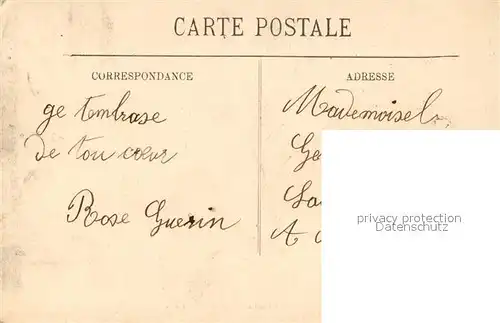 CARTE POSTALE
CORRESPONDANCE
ge tembrase
de tou cœur
Rose Guerin
ADRESSE
Mademoisel
A
privacy protection
Datenschutz